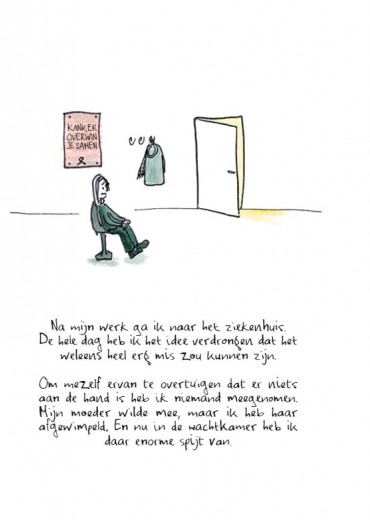 KANKER
OVERWIN
JE SAMEN
Na mijn werk ga ik naar het ziekenhuis.
De hele dag heb ik het idee verdrongen dat het
weleens heel erg mis zou kunnen zijn.
Om mezelf ervan te overtuigen dat er niets
aan de hand is heb ik niemand meegenomen.
Mijn moeder wilde mee, maar ik heb haar
afgewimpeld. En nu in de wachtkamer heb ik
daar enorme spijt van.